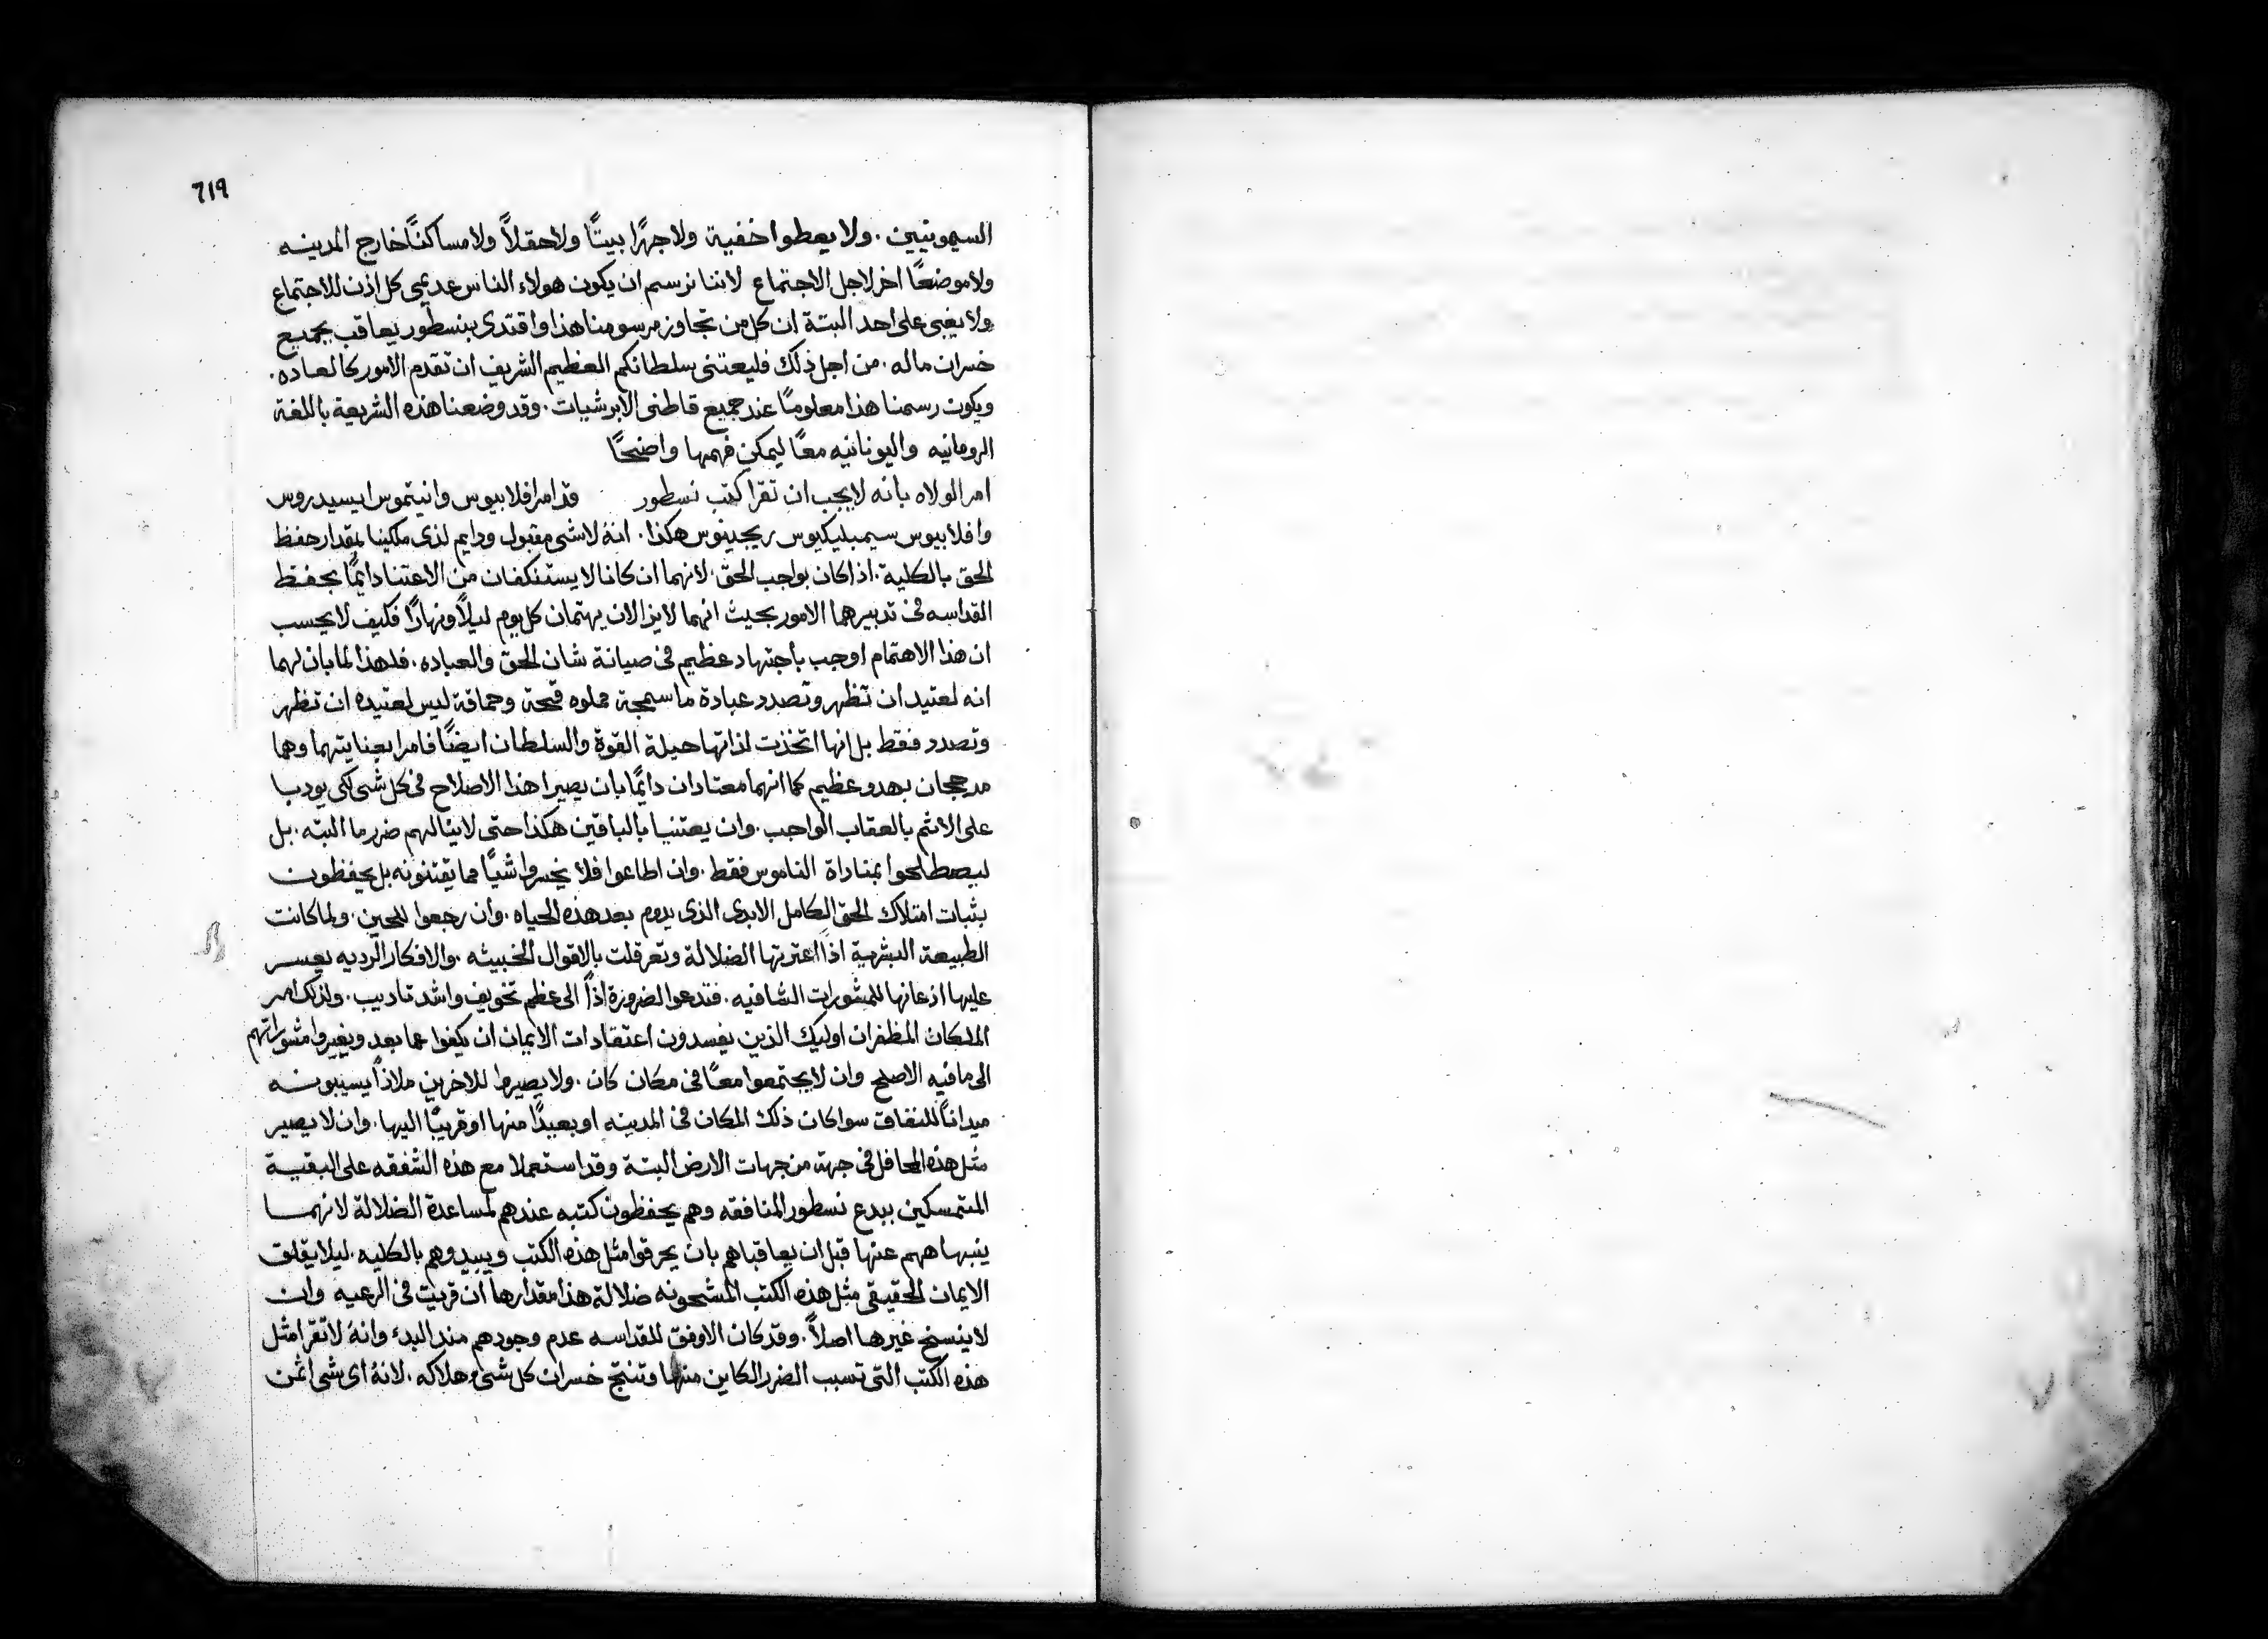 ٦١٩
السيمونيين. ولا يعطوا خفية ولا جهرًا بيتًا ولا حقلاً ولا مساكنًا خارج المدينه
ولا موضعًا اخر لاجل الاجتماع لاننا نرسم ان يكون هولاء الناس عديمى كل اذن للاجتماع
ولا يغبى على احد البتة ان كل من تجاوز مرسومنا هذا واقتدى بنسطور يعاقب بجميع
خسران ماله. من اجل ذلك فليعتنى سلطانكم العظيم الشريف ان تقدم الامور كالعاده.
ويكون رسمنا هذا معلومًا عند جميع قاطنى الابرشيات. وقد وضعنا هذه الشريعة باللغة
الرومانيه واليونانيه معًا ليمكن فهمها واضحًا
امر الولاه بانه لا يجب ان تقرا كتب نسطور قد امر افلابيوس وانيتموس ايسيدروس
وافلابيوس سيمبليكيوس ريجينوس هكذا. انهُ لا شى مقبول ودايم لذى ملكينا بمقدار حفظ
الحق بالكلية. اذا كان بواجب الحق. لانهما ان كانا لا يستنكفان من الاعتنا دايمًا بحفظ
القداسه فى تدبيرهما الامور بحيث انهما لا يزالان يهتمان كل يوم ليلاً ونهارًا فكيف لا يحسب
ان هذا الاهتمام اوجب باجتهاد عظيم فى صيانة شان الحق والعباده. فلهذا لما بان لهما
انه لعتيد ان تظهر وتصدد عبادة ما سمجة مملوه قحة وحماقة ليس لعتيده ان تظهر
وتصدد فقط بل انها اتخذت لذاتها حيلة القوة والسلطان ايضًا فامرا بعنايتهما وهما
مدججان بهدو عظيم كما انهما معتادان دايمًا بان يصيرا هذا الاصلاح فى كل شى لكى يودبا
على الاثم بالعقاب الواجب. وان يعتنيا بالباقين هكذا حتى لا ينالهم ضرر ما البته. بل
ليصطلحوا بمناداة الناموس فقط. وان اطاعوا فلا يخسروا شيًا مما يقتنونه بل يحفظون
بثبات امتلاك الحق الكامل الابدى الذى يدوم بعد هذه الحياه. وان رجعوا للحين. ولما كانت
الطبيعة البشرية اذا اعترتها الضلالة وتعرقلت بالاقوال الخبيثه. والافكار الرديه يعسر
عليها اذعانها للمشورات الشافيه. فتدعوا الضرورة اذاً الى عظم تخويف واشد تاديب. ولذلك امر
الملكان المظفران اوليك الذين يفسدون اعتقادات الايمان ان يكفوا عما بعد ويغيروا مشوراتهم
الى ما فيه الاصلح وان لا يجتمعوا معًا فى مكان كان. ولا يصيروا للاخرين ملاذاً يسيبونه
ميداناً للنفاق سوا كان ذلك المكان فى المدينه او بعيدًا منها او قريبًا اليها. وان لا يصير
مثل هذه المحافل فى جهة من جهات الارض البتة وقد استعملا مع هذه الشفقه على البقية
المتمسكين ببدع نسطور المنافقه وهم يحفظون كتبه عندهم لمساعدة الضلالة لانهما
ينبهاههم عنها قبل ان يعاقباهم بان يحرقوا مثل هذه الكتب ويبيدوهم بالكليه. ليلا يقلق
الايمان الحقيقى مثل هذه الكتب المشحونه ضلالة هذا مقدارها ان قريت فى الرعيه وان
لا ينسخ غيرها اصلاً. وقد كان الاوفق للقداسه عدم وجودهم منذ البدء وانهُ لا تقرا مثل
هذه الكتب التى تسبب الضرر الكاين منها وتنتج خسران كل شى وهلاكه. لانهُ اى شى اثمن